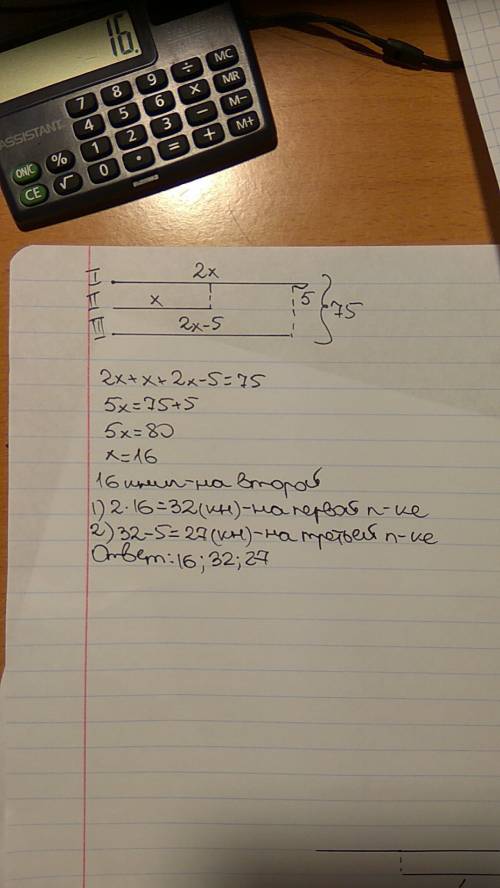 16.
ASSISTANT
7 8 9 ÷ MC
4 5 6 × MR
ON/C % 1 2 3 − M−
CE √ 0 • = + M+
I 2x
II x 5 75
III 2x-5
2x+x+2x-5=75
5x=75+5
5x=80
x=16
16 книг-на второй
1) 2·16=32(кн)-на первой п-ке
2) 32-5=27(кн)-на третьей п-ке
Ответ: 16; 32; 27